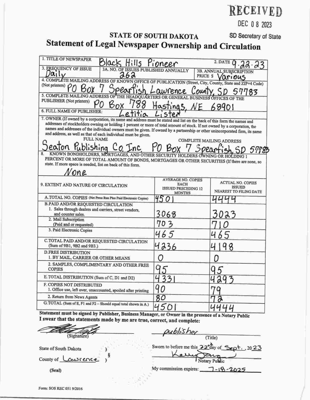 RECEIVED
DEC 08 2023
SD Secretary of State
STATE OF SOUTH DAKOTA
Statement of Legal Newspaper Ownership and Circulation
1. TITLE OF NEWSPAPER Black Hills Pioneer
2. DATE 9.22.23
3. FREQUENCY OF ISSUE Daily
3A. NO. OF ISSUES PUBLISHED ANNUALLY 262
3B. ANNUAL SUBSCRIPTION PRICE $ Various
4. COMPLETE MAILING ADDRESS OF KNOWN OFFICE OF PUBLICATION (Street, City, County, State and ZIP+4 Code) (Not printers)
PO Box 7 Spearfish Lawrence County, SD 57783
5. COMPLETE MAILING ADDRESS OF THE HEADQUARTERS OR GENERAL BUSINESS OFFICES OF THE PUBLISHER (Not printers)
PO Box 788 Hastings, NE 68901
6. FULL NAME OF PUBLISHER: Letitia Lister
7. OWNER (If owned by a corporation, its name and address must be stated and also on the back of this form the names and addresses of stockholders owning or holding 1 percent or more of total amount of stock. If not owned by a corporation, the names and addresses of the individual owners must be given. If owned by a partnership or other unincorporated firm, its name and address, as well as that of each individual must be given.
FULL NAME COMPLETE MAILING ADDRESS
Seaton Publishing Co Inc PO Box 7 Spearfish, SD 57783
8. KNOWN BONDHOLDERS, MORTGAGEES, AND OTHER SECURITY HOLDERS OWNING OR HOLDING 1 PERCENT OR MORE OF TOTAL AMOUNT OF BONDS, MORTGAGES OR OTHER SECURITIES (If there are none, so state. If more space is needed, list on back of this form.
None
9. EXTENT AND NATURE OF CIRCULATION
AVERAGE NO. COPIES EACH ISSUES PRECEDING 12 MONTHS
ACTUAL NO. COPIES ISSUES NEAREST TO FILING DATE
A. TOTAL NO. COPIES 4501 4444
B. PAID AND/OR REQUESTED CIRCULATION
1. Sales through dealers and carriers, street vendors, and counter sales. 3068 3023
2. Mail Subscription (Paid and or requested) 703 710
3. Paid Electronic Copies 465 465
C. TOTAL PAID AND/OR REQUESTED CIRCULATION (Sum of 9B1, 9B2 and 9B3.) 4236 4198
D. FREE DISTRIBUTION
1. BY MAIL, CARRIER OR OTHER MEANS 0 0
2. SAMPLES, COMPLIMENTARY AND OTHER FREE COPIES 95 95
E. TOTAL DISTRIBUTION (Sum of C, D1 and D2) 4331 4293
F. COPIES NOT DISTRIBUTED
1. Office use, left over, unaccounted, spoiled after printing 90 79
2. Return from News Agents 80 72
G. TOTAL (Sum of E, F1 and F2 - Should equal total shown in A.) 4501 4444
Statement must be signed by Publisher, Business Manager, or Owner in the presence of a Notary Public
I swear that the statements made by me are true, correct, and complete:
publisher
(Signature) (Title)
State of South Dakota )
County of Lawrence ) §
Sworn to before me this 22nd day of Sept. 2023
Notary Public
(Seal)
My commission expires: 7-18-2025